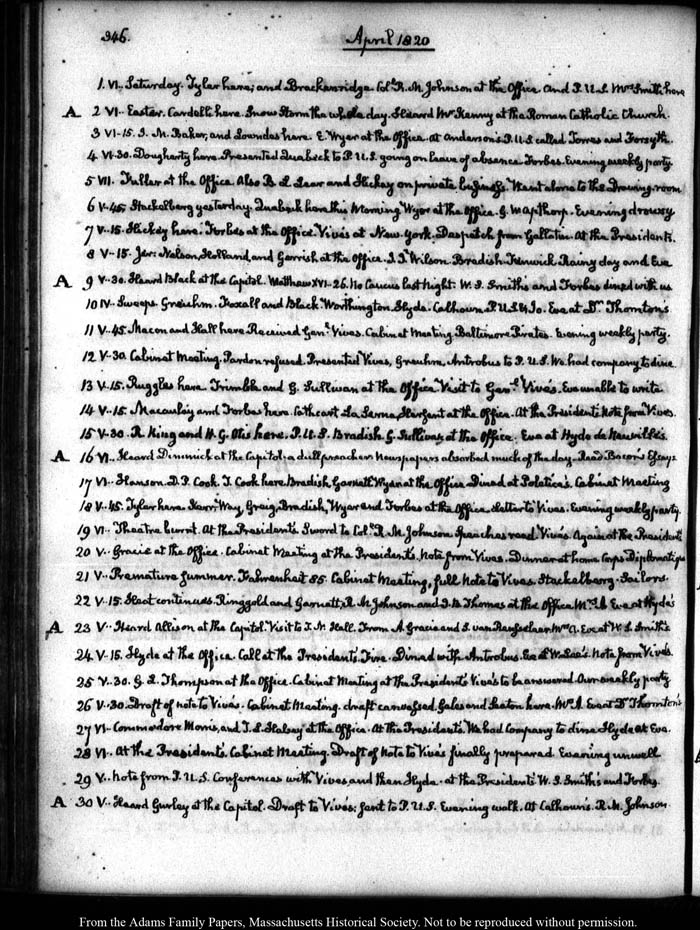 346.
April 1820
1. VI.. Saturday. Tyler here; and Brackenridge. Colᵒ R. M Johnson at the Office. And P. U. S. Mrs Smith here
A 2 VI.. Easter. Cardelli here. Snow Storm the whole day. Heard Mr Kenny at the Roman Catholic Church.
3 VI-15. J. M. Baker, and Lowndes here. E. Wyer at the Office. At Anderson's P. U. S called Torres and Forsyth.
4 VI-30. Dougherty here. Presented Quabeck to P. U. S going on leave of absence. Forbes. Evening weekly party
5 VII. Fuller at the Office. Also B. L. Lear and Hickey on private business. Went alone to the Drawing-room
6 V-45. Stackelberg yesterday. Quabeck here this Morning. Wyer at the Office. G. W Apthorp. Evening drowsy
7 V-15. Hickey here. Forbes at the Office. Vivés at New-York. Despatch from Gallatin. At the President's.
8 V-15. Jer: Nelson, Holland, and Gerrish at the Office. J. J. Wilson. Bradish. Fenwick. Rainy day and Eve
A 9 V-30. Heard Black at the Capitol. Matthew XVI-26. No Caucus last Night. W. S. Smith's and Forbes dined with us
10 IV.. Sweeps. Greuhm. Foxall and Black. Worthington. Hyde. Calhoun. P. U. S &Jo. Eve at Dr Thornton's
11 V-45. Macon and Hall here. Received Genl Vivés. Cabinet Meeting. Baltimore Pirates. Evening weekly party.
12 V-30. Cabinet Meeting. Pardon refused. Presented Vives, Greuhm, Antrobus to P. U. S. We had company to dine
13 V-15. Ruggles here. Trimble and G. Sullivan at the Office. Visit to Genl Vivés. Eve unable to write
14 V-15. Macaulay and Forbes here. Cathcart La Serna, Sergeant at the Office. At the President's. Note from Vives.
15 V-30. R. King and H. G. Otis here. P. U. S. Bradish. G. Sullivan at the Office. Eve at Hyde de Neuville's.
A 16 VI.. Heard Dimmick at the Capitol. a dull preacher. Newspapers absorbed much of the day. Read Bacon's Essays
17 VI.. Hanson. D. P. Cook. J. Cook here. Bradish, Garnett, Wyer at the Office. Dined at Poletica's. Cabinet Meeting
18 V-45. Tyler here. Way, Greig, Bradish, Wyer and Forbes at the Office. Letter to Vives. Evening weekly party.
19 VI.. Theatre burnt. At the President's. Sword to Colᵒ R. M. Johnson. Speeches read. Vivés. Again at the Presidents
20 V.. Gracie at the Office. Cabinet Meeting at the President's. Note from Vives. Dinner at home. Corps Diplomatique
21 V.. Premature Summer. Fahrenheit 85. Cabinet Meeting, full. Note to Vives. Stackelberg. Sailors.
22 V-15. Heat continues. Ringgold and Garnett, R. M Johnson and J. B. Thomas at the Office. Mrs A Eve at Hyde's
A 23 V.. Heard Allison at the Capitol. Visit to T. N. Hall. From A Gracie and S. van Rensselaer. Mrs A. Eve at W. S. Smith's
24 V-15. Hyde at the Office. Call at the President's. Fire. Dined with Antrobus. Eve at W. Lee's. Note from Vivés
25 V-30. G. L. Thompson at the Office. Cabinet Meeting at the President's. Vivés to be answered. Our weekly party
26 V-30. Draft of note to Vivés. Cabinet Meeting. draft canvassed. Gales and Seaton here. Mrs A. Eve at Dr Thornton's
27 VI- Commodore Morris, and J. L. Halsey at the Office. At the President's. We had Company to dine. Hyde at Eve.
28 VI.. At the President's. Cabinet Meeting. Draft of Note to Vivés finally prepared. Evening unwell
29 V.. Note from P. U. S. Conferences with Vives, and then Hyde. At the President's. W. S. Smith's and Forbes.
A 30 V.. Heard Gurley at the Capitol. Draft to Vives; sent to P. U. S. Evening walk. At Calhoun's. R. M. Johnson
From the Adams Family Papers, Massachusetts Historical Society. Not to be reproduced without permission.